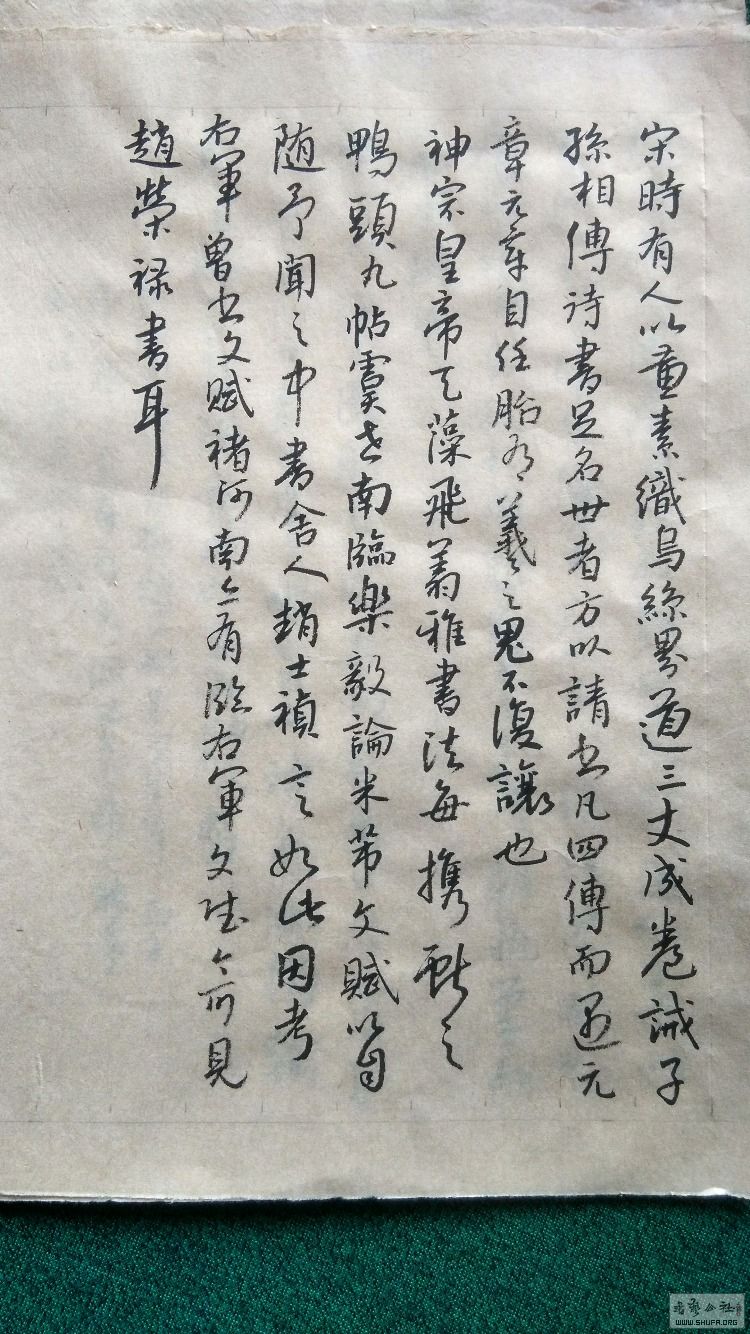 宋時有人以黃素織烏絲界道三丈成卷誡子
孫相傳詩書足名世者方以請書凡四傳而遇元
章元章自任腕有羲之鬼不復讓也
神宗皇帝天藻飛翥雅書法每攜獻之
鴨頭丸帖虞世南臨樂毅論米芾文賦以自
随予聞之中書舍人趙士禎言如此因考
右軍曾書文賦褚河南亦有臨右軍文賦今可見
趙榮祿書耳
書藝公社
WWW.SHUFA.ORG